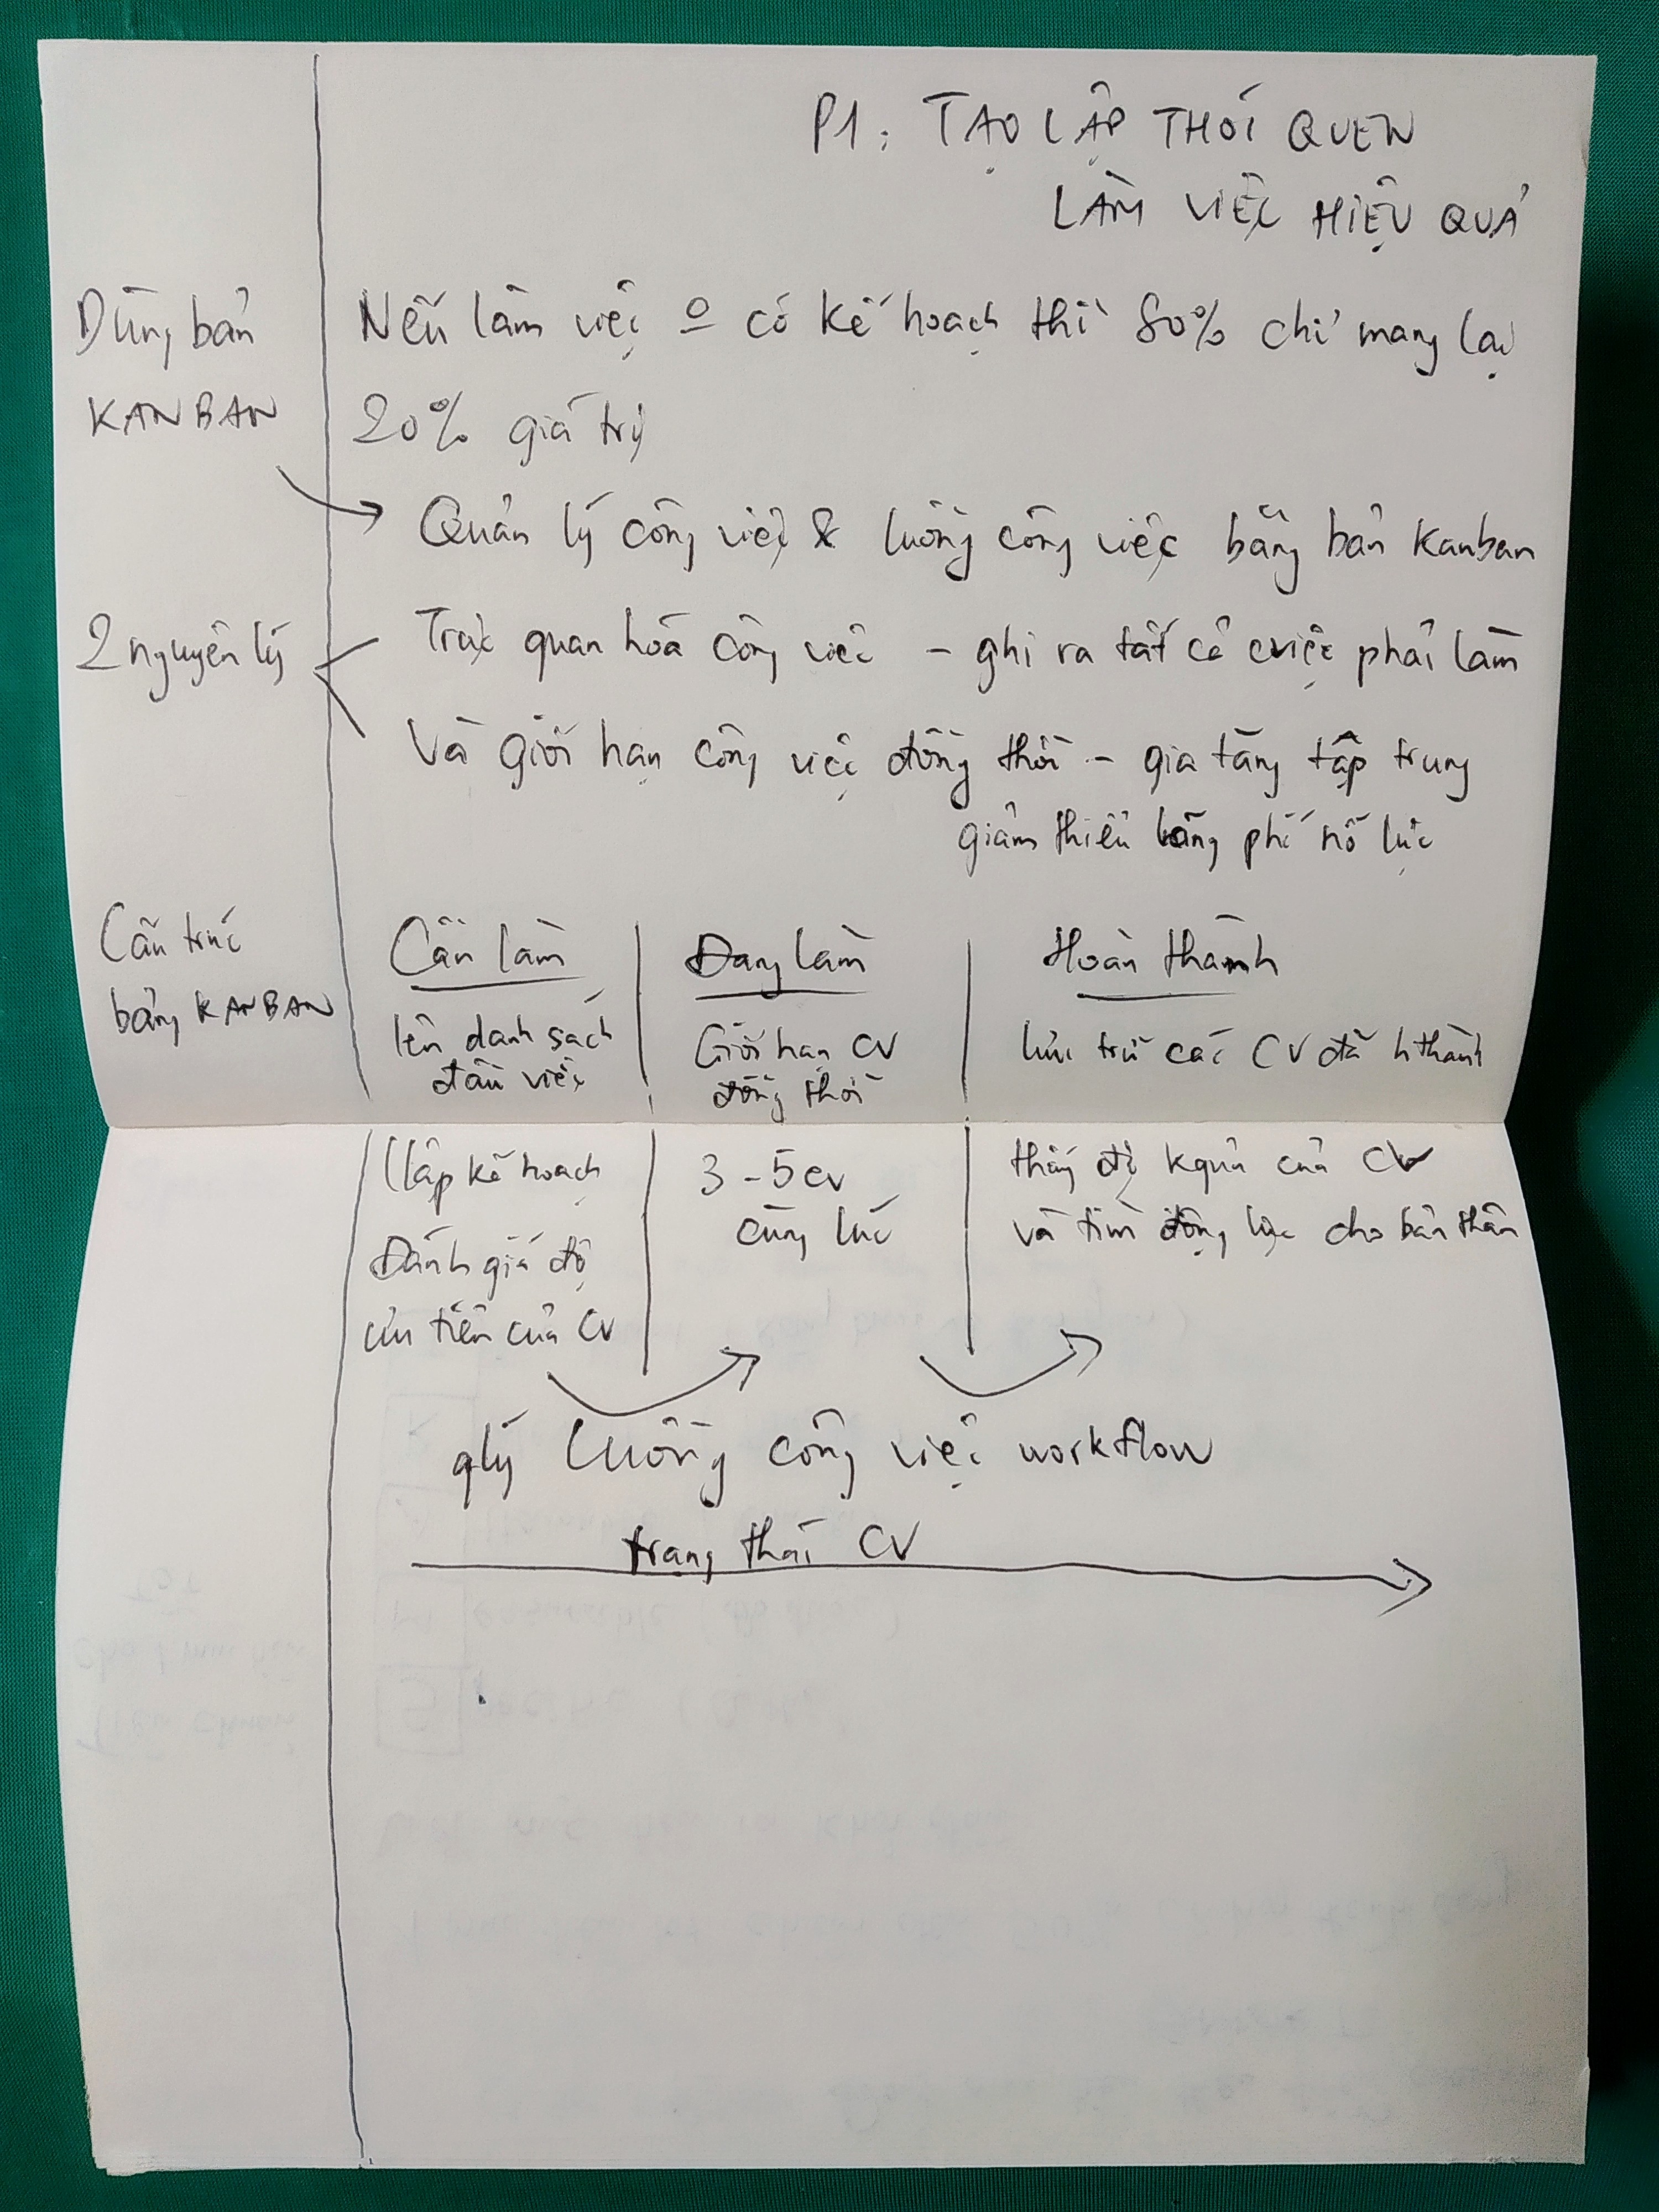 P1: TẠO LẬP THÓI QUEN
LÀM VIỆC HIỆU QUẢ
Dùng bản
KANBAN
Nếu làm việc o có kế hoạch thì 80% chỉ mang lại
20% giá trị
Quản lý công việc & luồng công việc bằng bản Kanban
2 nguyên lý
Trực quan hoá công việc - ghi ra tất cả cviệc phải làm
Và giới hạn công việc đồng thời - gia tăng tập trung
giảm thiểu lãng phí nỗ lực
Cấu trúc
bảng KANBAN
Cần làm
Đang làm
Hoàn thành
lên danh sách
đầu việc
Giới hạn CV
đồng thời
lưu trữ các CV đã hthành
lập kế hoạch
Đánh giá độ
ưu tiên của CV
3 - 5 cv
cùng lúc
thấy đc kquả của CV
và tìm động lực cho bản thân
qlý luồng công việc workflow
trạng thái CV